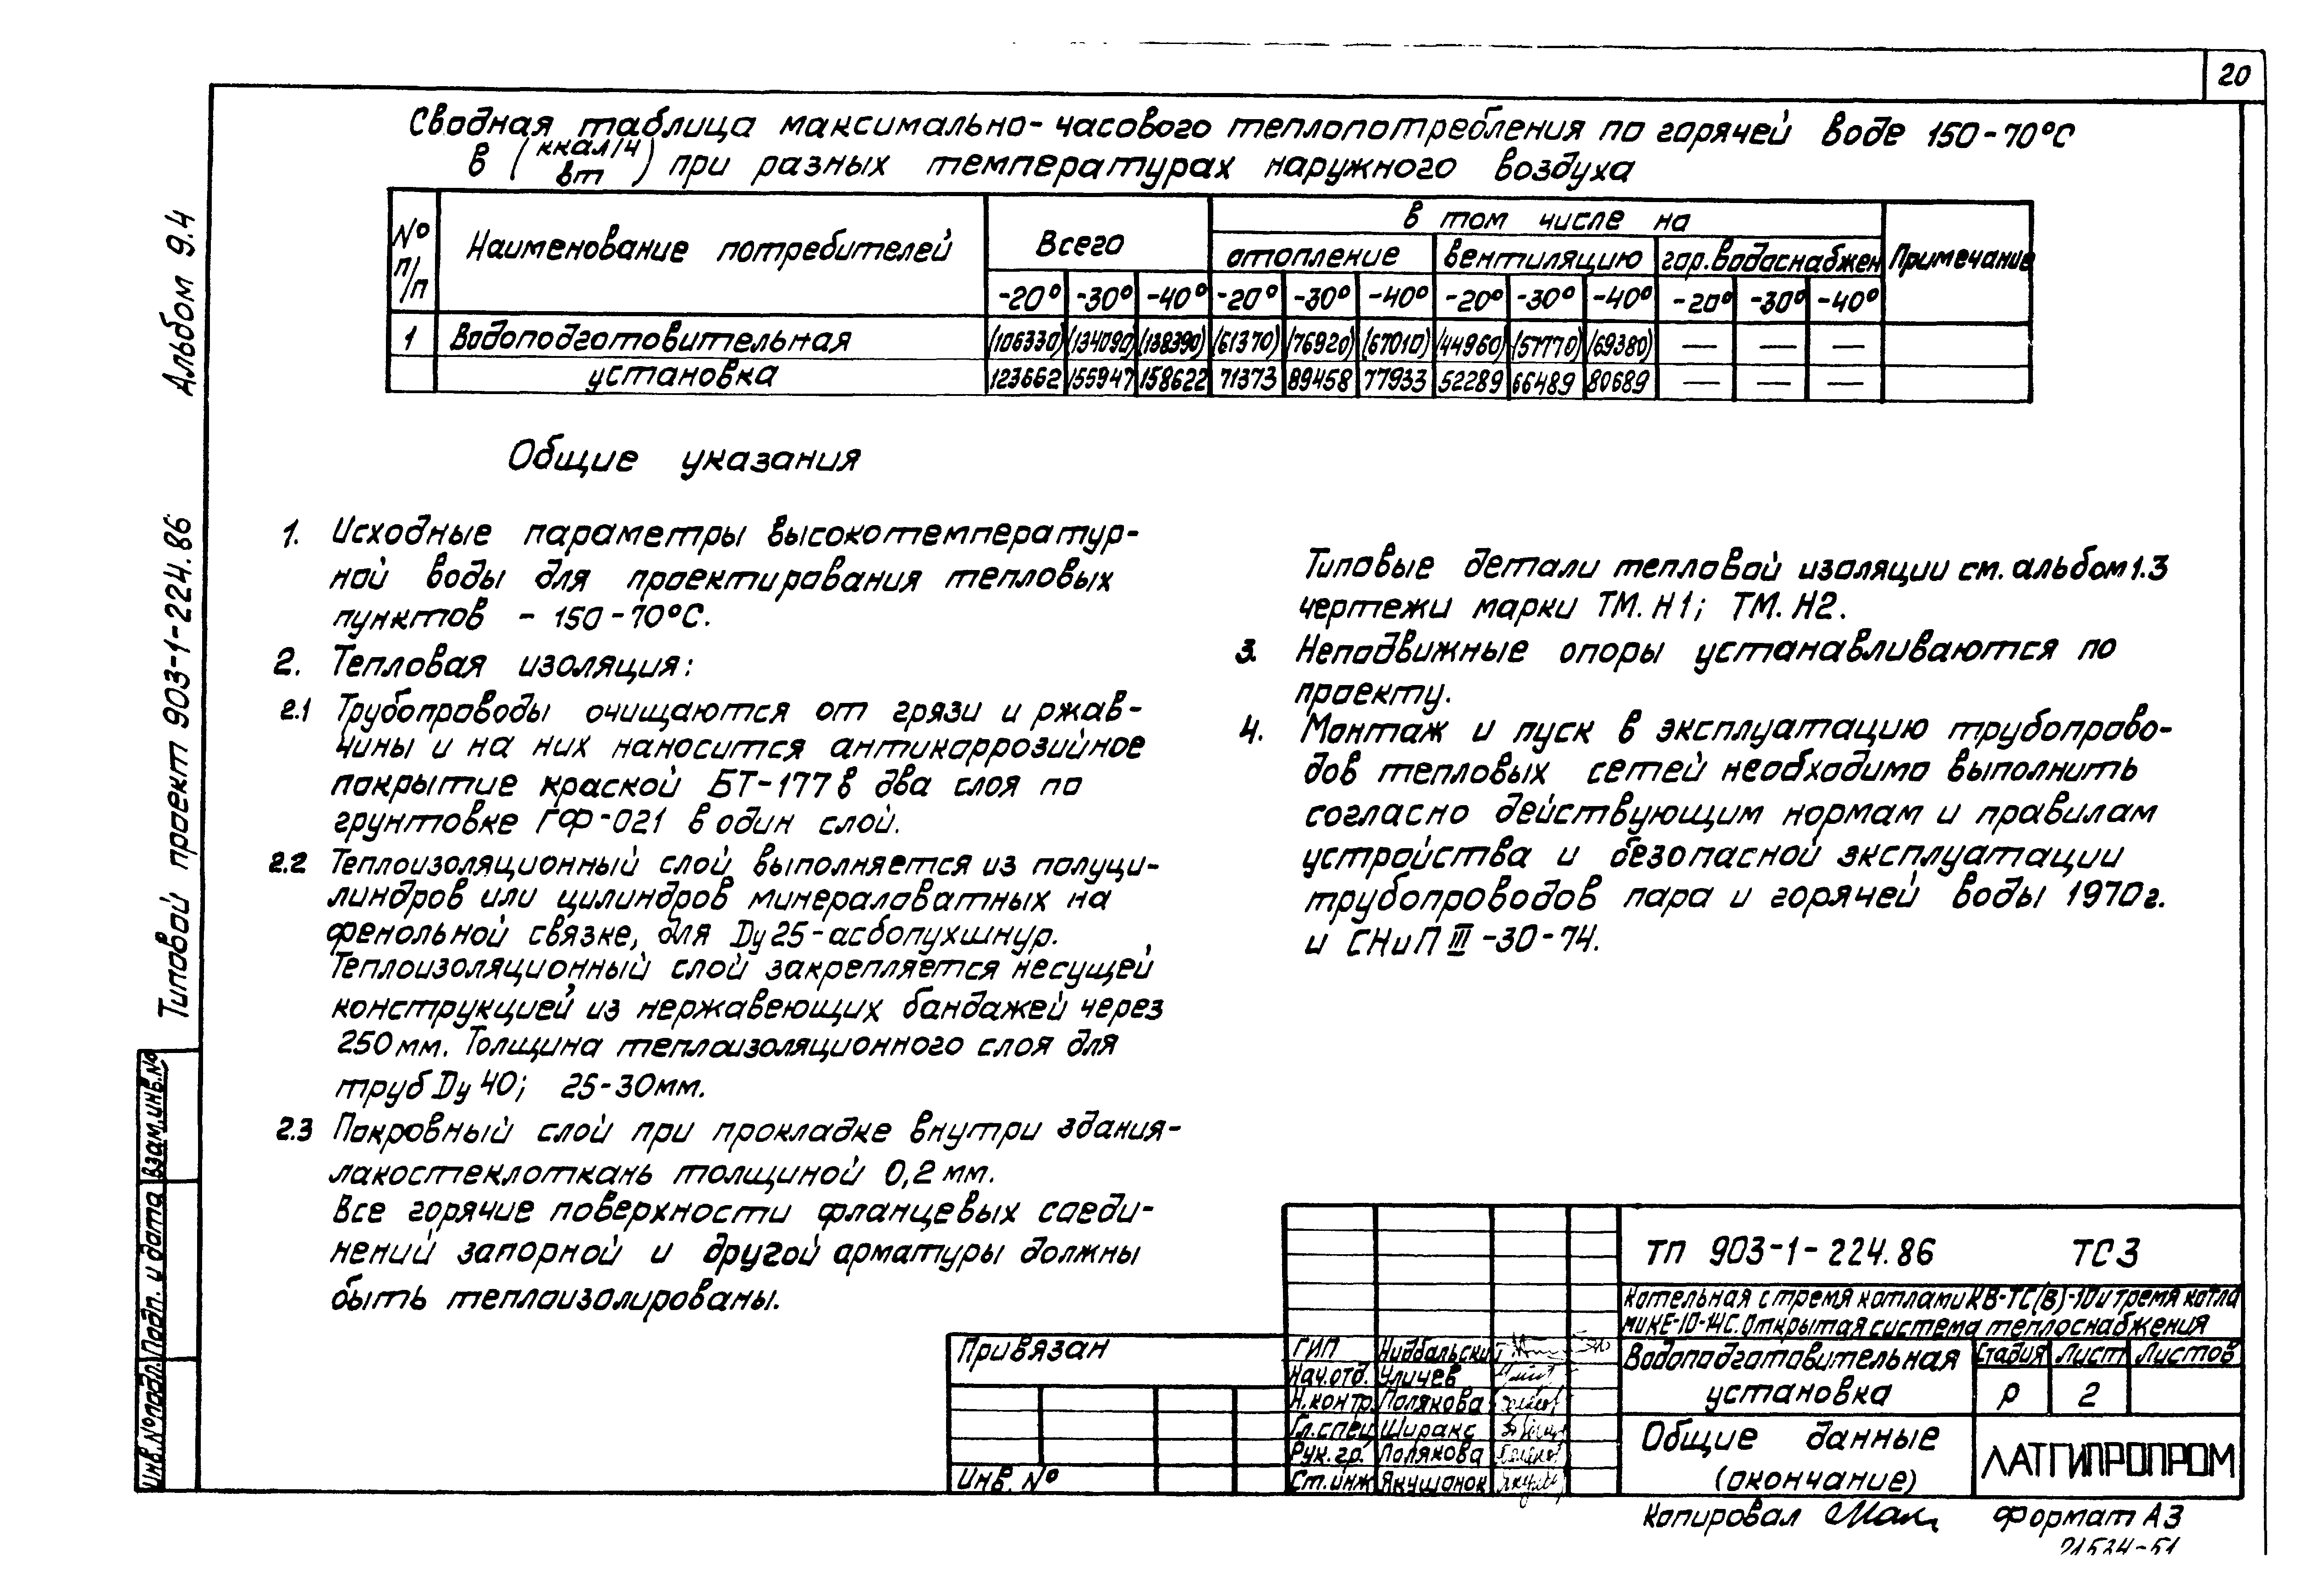 20
Сводная таблица максимально-часового теплопотребления по горячей воде 150-70°С
в (ккал/ч
вт) при разных температурах наружного воздуха
№ п/п Наименование потребителей Всего в том числе на Примечание
отопление вентиляцию гор.водоснабжен
-20° -30° -40° -20° -30° -40° -20° -30° -40° -20° -30° -40°
1 Водоподготовительная (106330) (134090) (138390) (61370) (76920) (67010) (44960) (57770) (69380) — — —
установка 123662 155947 158622 71373 89458 77933 52289 66489 80689 — — —
Общие указания
1. Исходные параметры высокотемператур-
ной воды для проектирования тепловых
пунктов - 150-70°С.
2. Тепловая изоляция:
2.1 Трубопроводы очищаются от грязи и ржав-
чины и на них наносится антикоррозийное
покрытие краской БТ-177 в два слоя по
грунтовке ГФ-021 в один слой.
2.2 Теплоизоляционный слой выполняется из полуци-
линдров или цилиндров минераловатных на
фенольной связке, для Dу 25-асбопухшнур.
Теплоизоляционный слой закрепляется несущей
конструкцией, из нержавеющих бандажей через
250 мм. Толщина теплоизоляционного слоя для
труб Dу 40; 25-30мм.
2.3 Покровный слой при прокладке внутри здания-
лакостеклоткань толщиной 0,2 мм.
Все горячие поверхности фланцевых соеди-
нений запорной и другой арматуры должны
быть теплоизолированы.
Типовые детали тепловой изоляции см. альбом 1.3
чертежи марки ТМ.Н1; ТМ.Н2.
3. Неподвижные опоры устанавливаются по
проекту.
4. Монтаж и пуск в эксплуатацию трубопрово-
дов тепловых сетей необходимо выполнить
согласно действующим нормам и правилам
устройства и безопасной эксплуатации
трубопроводов пара и горячей воды 1970г.
и СНиП III-30-74.
Альбом 9.4
Типовой проект 903-1-224.86
Взам.инв.№
Подп. и дата
Инв.№подл.
Привязан
Инв. №
ГИП Нидбальский
Нач.отд. Уличев
Н.контр. Полякова
Гл.спец. Ширакс
Рук.гр. Полякова
Ст.инж Якушонок
ТП 903-1-224.86 ТС3
Котельная с тремя котлами КВ-ТС(В)-10 и тремя котла
ми КЕ-10-14С. Открытая система теплоснабжения
Водоподготовительная
установка
Стадия Лист Листов
Р 2
Общие данные
(окончание)
ЛАТГИПРОПРОМ
Копировал
Формат А3
21534-51